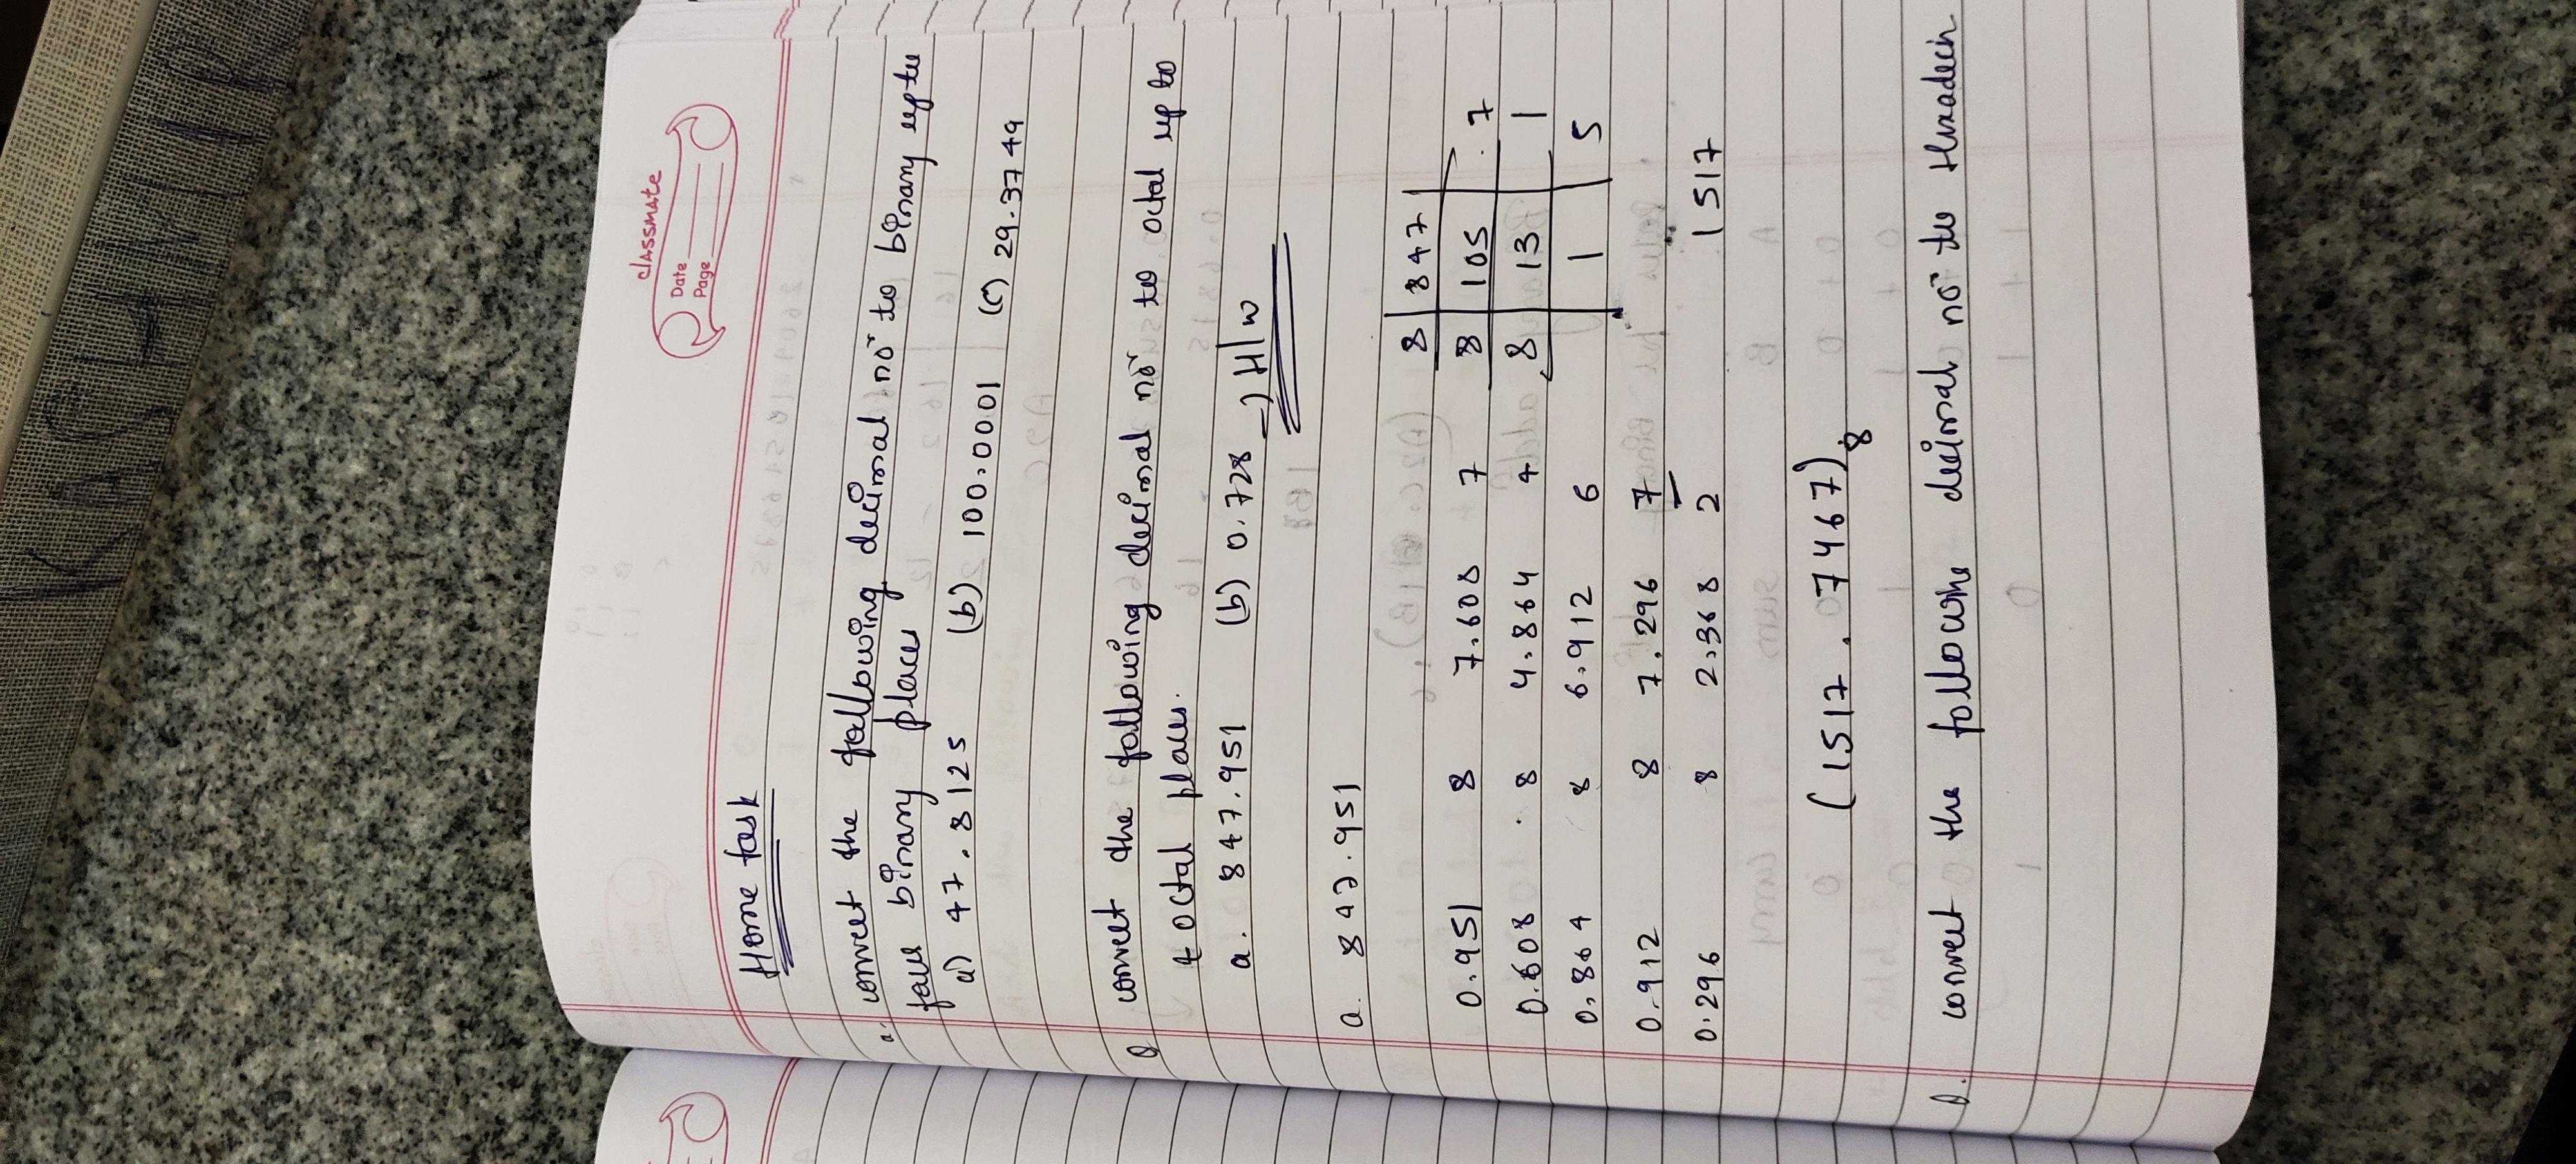 KASHMIR
classmate
Date
Page
Home task
convert the following decimal no to binary upto
four binary places
a) 47.8125 (b) 100.0001 (c) 29.3749
Q convert the following decimal no to octal up to
4 octal places.
a. 847.951 (b) 0.728 → H/w
a. 847.951
8 847
0.951 8 7.608 7 8 105 7
0.608 8 4.864 4 8 13 1
0.864 8 6.912 6 1 5
0.912 8 7.296 7
0.296 8 2.368 2 1517
(1517.7467)8
Q. convert the following decimal no to Hexadecin